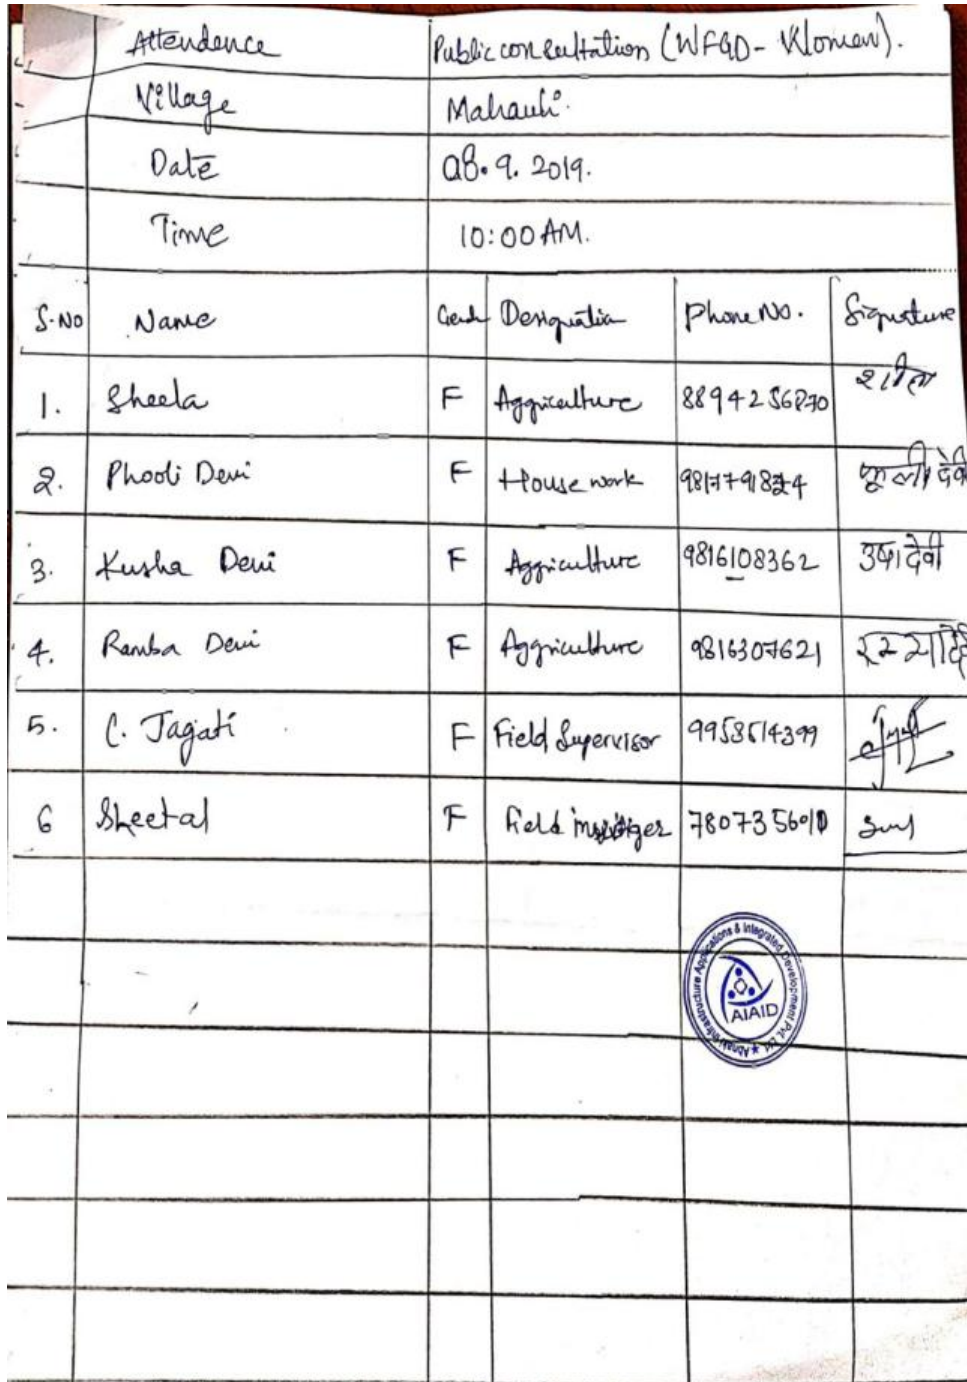 Attendence Public consultation (WFGD - Women).
Village Mahauli.
Date 08.9.2019.
Time 10:00 AM.
S.No Name Gend Designatia Phone No. Signature
1. Sheela F Aggriculture 8894256870 शीला
2. Phooli Devi F House work फूली देवी
3. Kusha Devi F Aggriculture 9816108362 उषा देवी
4. Ramba Devi F Aggriculture 9816307621
5. C. Jagati F Field Supervisor 9958514399
6 Sheetal F Field
Abnaki Infrastructure Applications & Integrated Development Pvt. Ltd.
AIAID